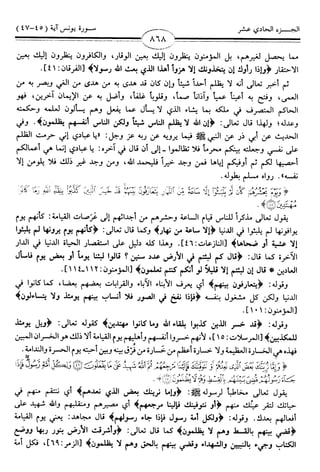 الجزء الحادي عشر
٨٦٨
سورة يونس آية (٤٥-٤٧)
مما يحصل لغيرهم، بل المؤمنون ينظرون إليك بعين الوقار، والكافرون ينظرون إليك بعين
الاحتقار ﴿وإذا رأوك إن يتخذونك إلا هزواً أهذا الذي بعث الله رسولا﴾ [الفرقان: ٤١].
ثم أخبر تعالى أنه لا يظلم أحداً شيئاً وإن كان قد هدى به من هدى من الغي وبصر به من
العمى، وفتح به أعيناً عمياً وآذاناً صماً، وقلوباً غلفاً، وأضل به عن الإيمان آخرين، فهو
الحاكم المتصرف في ملكه بما يشاء الذي لا يسأل عما يفعل وهم يسألون لعلمه وحكمته
وعدله، ولهذا قال تعالى: ﴿إن الله لا يظلم الناس شيئاً ولكن الناس أنفسهم يظلمون﴾. وفي
الحديث عن أبي ذر عن النبي ﷺ فيما يرويه عن ربه عز وجل: «يا عبادي إني حرمت الظلم
على نفسي وجعلته بينكم محرماً فلا تظالموا ــ إلى أن قال في آخره: يا عبادي إنما هي أعمالكم
أحصيها لكم ثم أوفيكم إياها فمن وجد خيراً فليحمد الله، ومن وجد غير ذلك فلا يلومن إلا
نفسه». رواه مسلم بطوله.
وَيَوْمَ يَحْشُرُهُمْ كَأَن لَّمْ يَلْبَثُوا إِلَّا سَاعَةً مِّنَ النَّهَارِ يَتَعَارَفُونَ بَيْنَهُمْ قَدْ خَسِرَ الَّذِينَ كَذَّبُوا بِلِقَاءِ اللَّهِ وَمَا كَانُوا
مُهْتَدِينَ
يقول تعالى مذكراً للناس قيام الساعة وحشرهم من أجداثهم إلى عَرَصات القيامة: كأنهم يوم
يوافونها لم يلبثوا في الدنيا ﴿إلا ساعة من نهار﴾ وكما قال تعالى: ﴿كأنهم يوم يرونها لم يلبثوا
إلا عشية أو ضحاها﴾ [النازعات: ٤٦]. وهذا كله دليل على استقصار الحياة الدنيا في الدار
الآخرة كما قال: ﴿قال كم لبثتم في الأرض عدد سنين * قالوا لبثنا يوماً أو بعض يوم فاسأل
العادين * قال إن لبثتم إلا قليلاً لو أنكم كنتم تعلمون﴾ [المؤمنون: ١١٢ــ١١٤].
وقوله: ﴿يتعارفون بينهم﴾ أي يعرف الأبناء الآباء والقرابات بعضهم بعضاً، كما كانوا في
الدنيا ولكن كل مشغول بنفسه ﴿فإذا نفخ في الصور فلا أنساب بينهم يومئذ ولا يتساءلون﴾
[المؤمنون: ١٠١].
وقوله: ﴿قد خسر الذين كذبوا بلقاء الله وما كانوا مهتدين﴾ كقوله تعالى: ﴿ويل يومئذ
للمكذبين﴾ [المرسلات: ١٥]. لأنهم خسروا أنفسهم وأهليهم يوم القيامة ألا ذلك هو الخسران المبين
فهذه هي الخسارة العظيمة ولا خسارة أعظم من خسارة من فُرق بينه وبين أحبته يوم الحسرة والندامة.
وَإِمَّا نُرِيَنَّكَ بَعْضَ الَّذِي نَعِدُهُمْ أَوْ نَتَوَفَّيَنَّكَ فَإِلَيْنَا مَرْجِعُهُمْ ثُمَّ اللَّهُ شَهِيدٌ عَلَىٰ مَا يَفْعَلُونَ وَلِكُلِّ أُمَّةٍ رَّسُولٌ فَإِذَا جَاءَ
رَسُولُهُمْ قُضِيَ بَيْنَهُم بِالْقِسْطِ وَهُمْ لَا يُظْلَمُونَ
يقول تعالى مخاطباً لرسوله ﷺ: ﴿وإما نرينك بعض الذي نعدهم﴾ أي ننتقم منهم في
حياتك لتقر عينك منهم ﴿أو نتوفينك فإلينا مرجعهم﴾ أي مصيرهم ومنقلبهم والله شهيد على
أفعالهم بعدك. وقوله: ﴿ولكل أمة رسول فإذا جاء رسولهم﴾ قال مجاهد: يعني يوم القيامة
﴿قضي بينهم بالقسط وهم لا يظلمون﴾ كما قال تعالى: ﴿وأشرقت الأرض بنور ربها ووضع
الكتاب وجيء بالنبيين والشهداء وقضي بينهم بالحق وهم لا يظلمون﴾ [الزمر: ٦٩]. فكل أمة